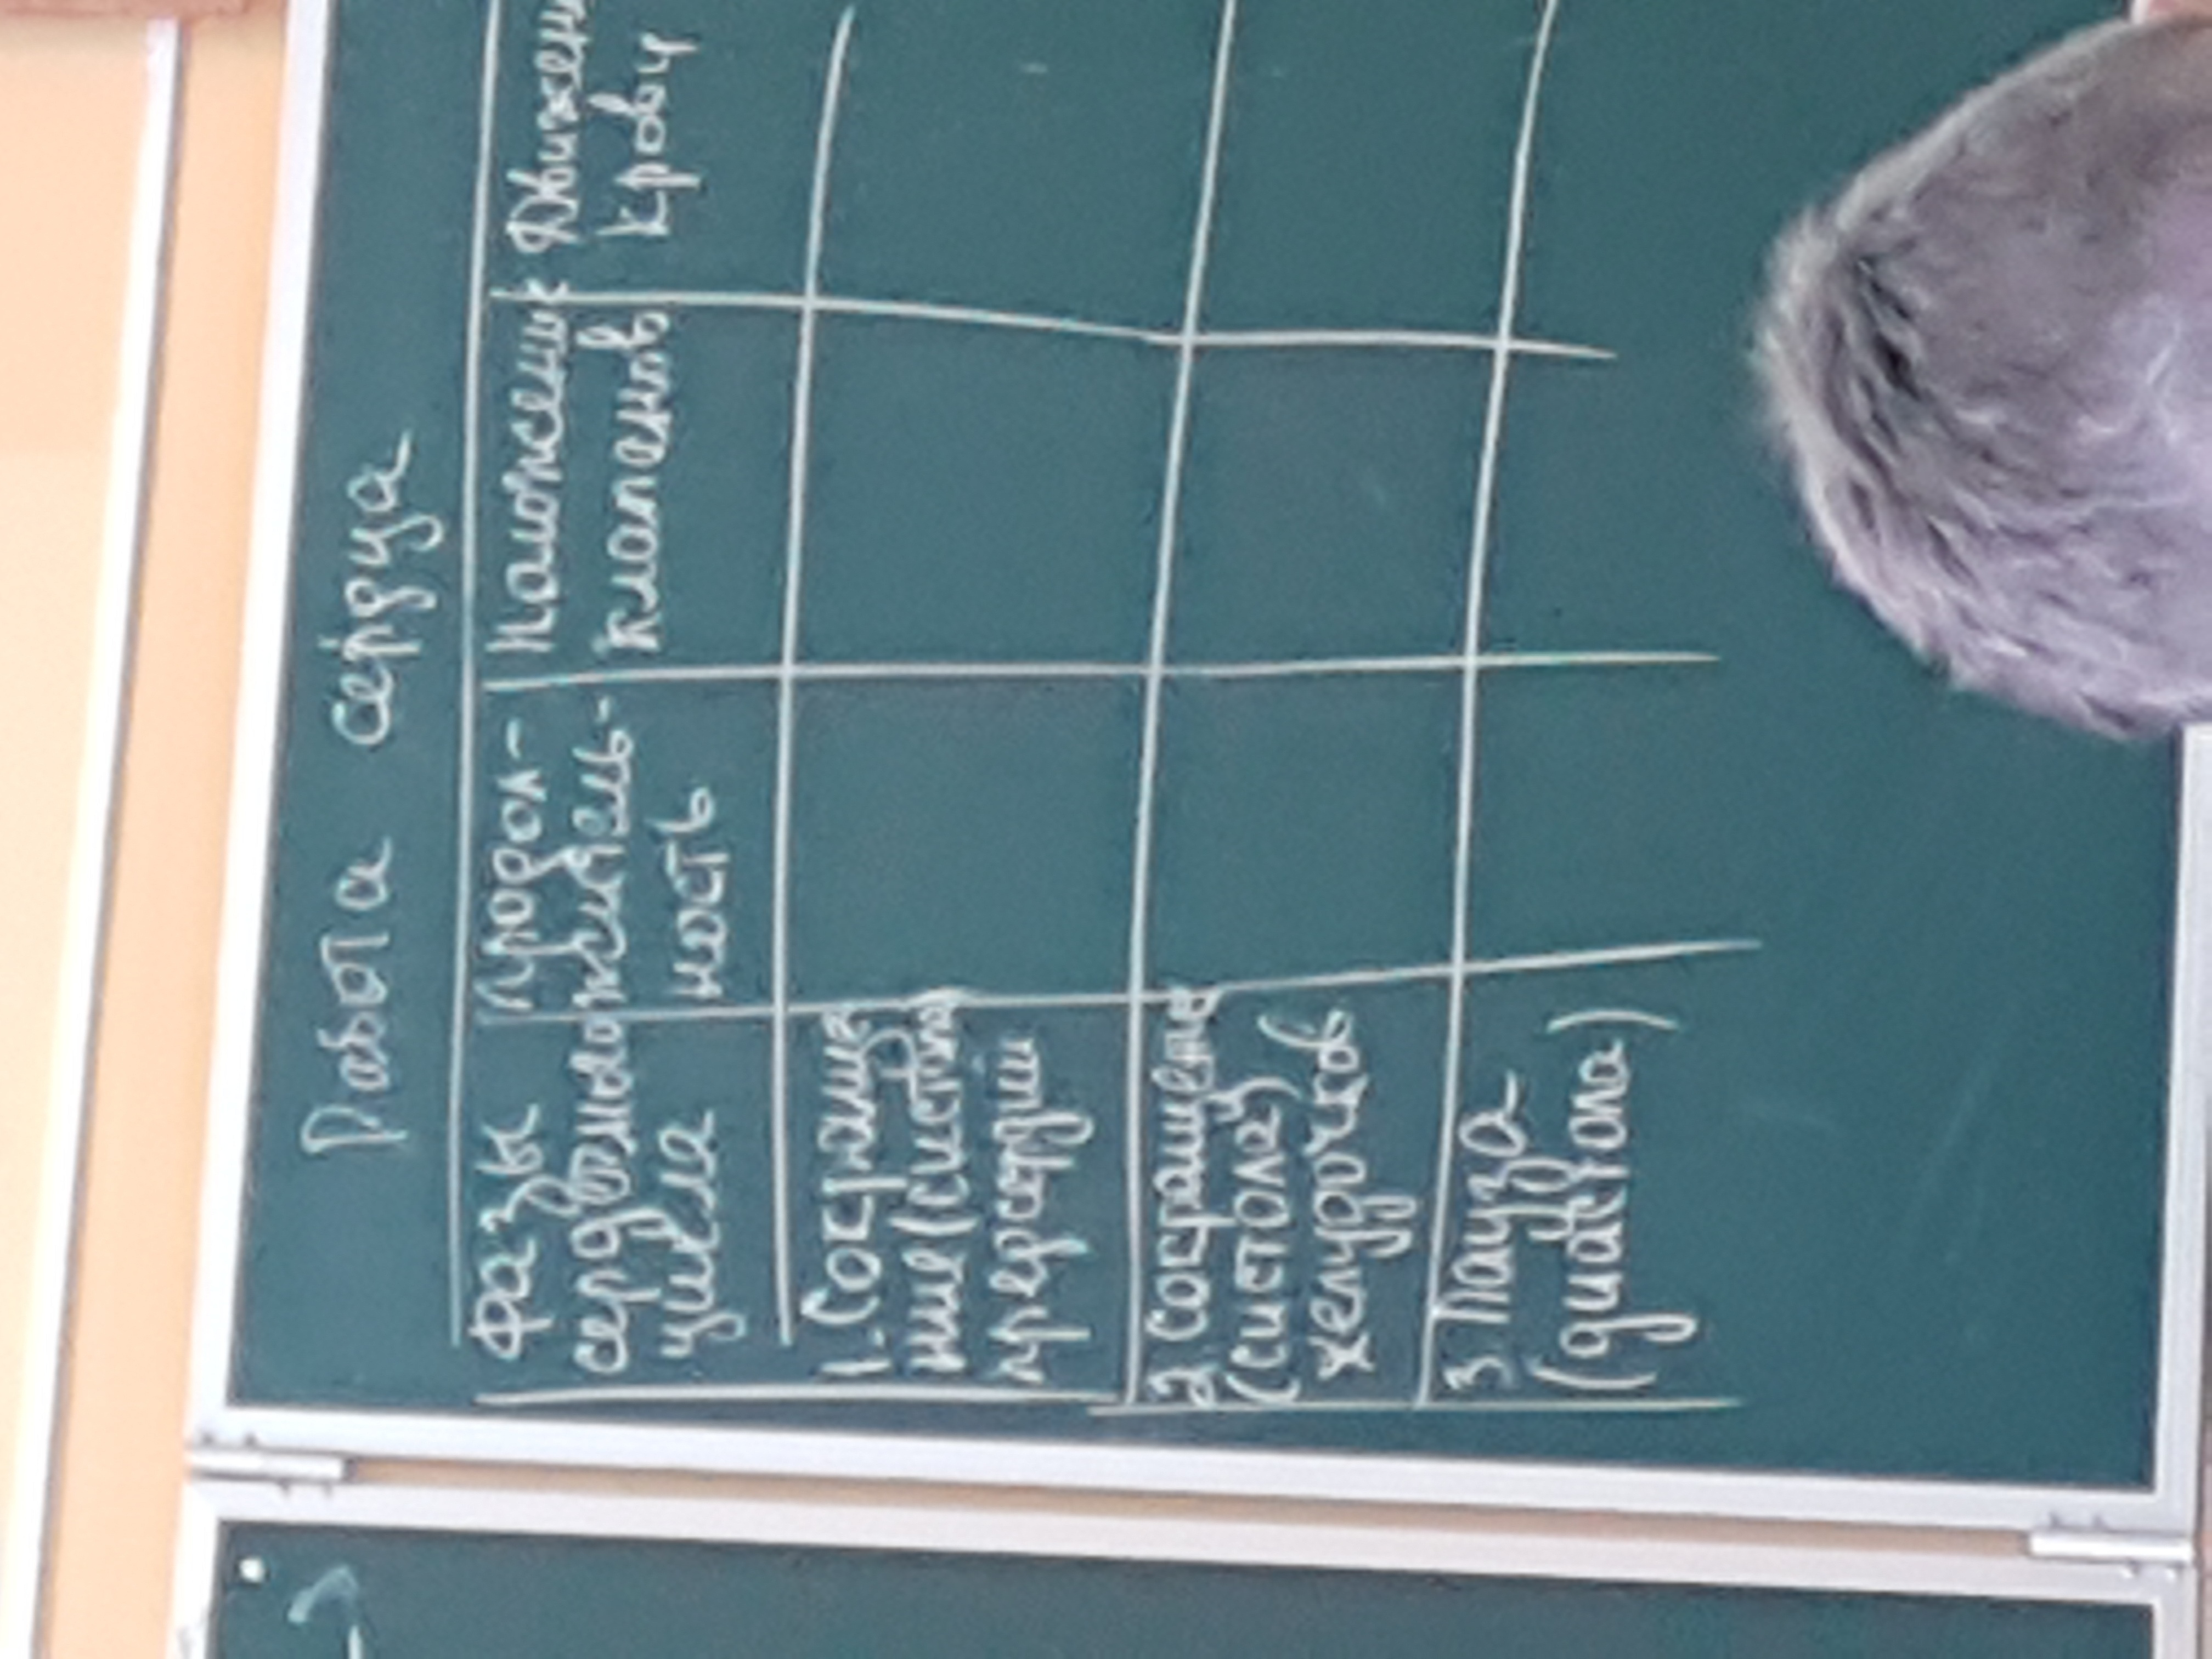 Работа сердца
Фазы
сердечного
цикла
Продол-
житель-
ность
Положение
клапанов
Движен
крови
1. Сокраще
ние (систола)
предсердий
2. Сокращение
(систола)
желудочков
3. Пауза
(диастола)